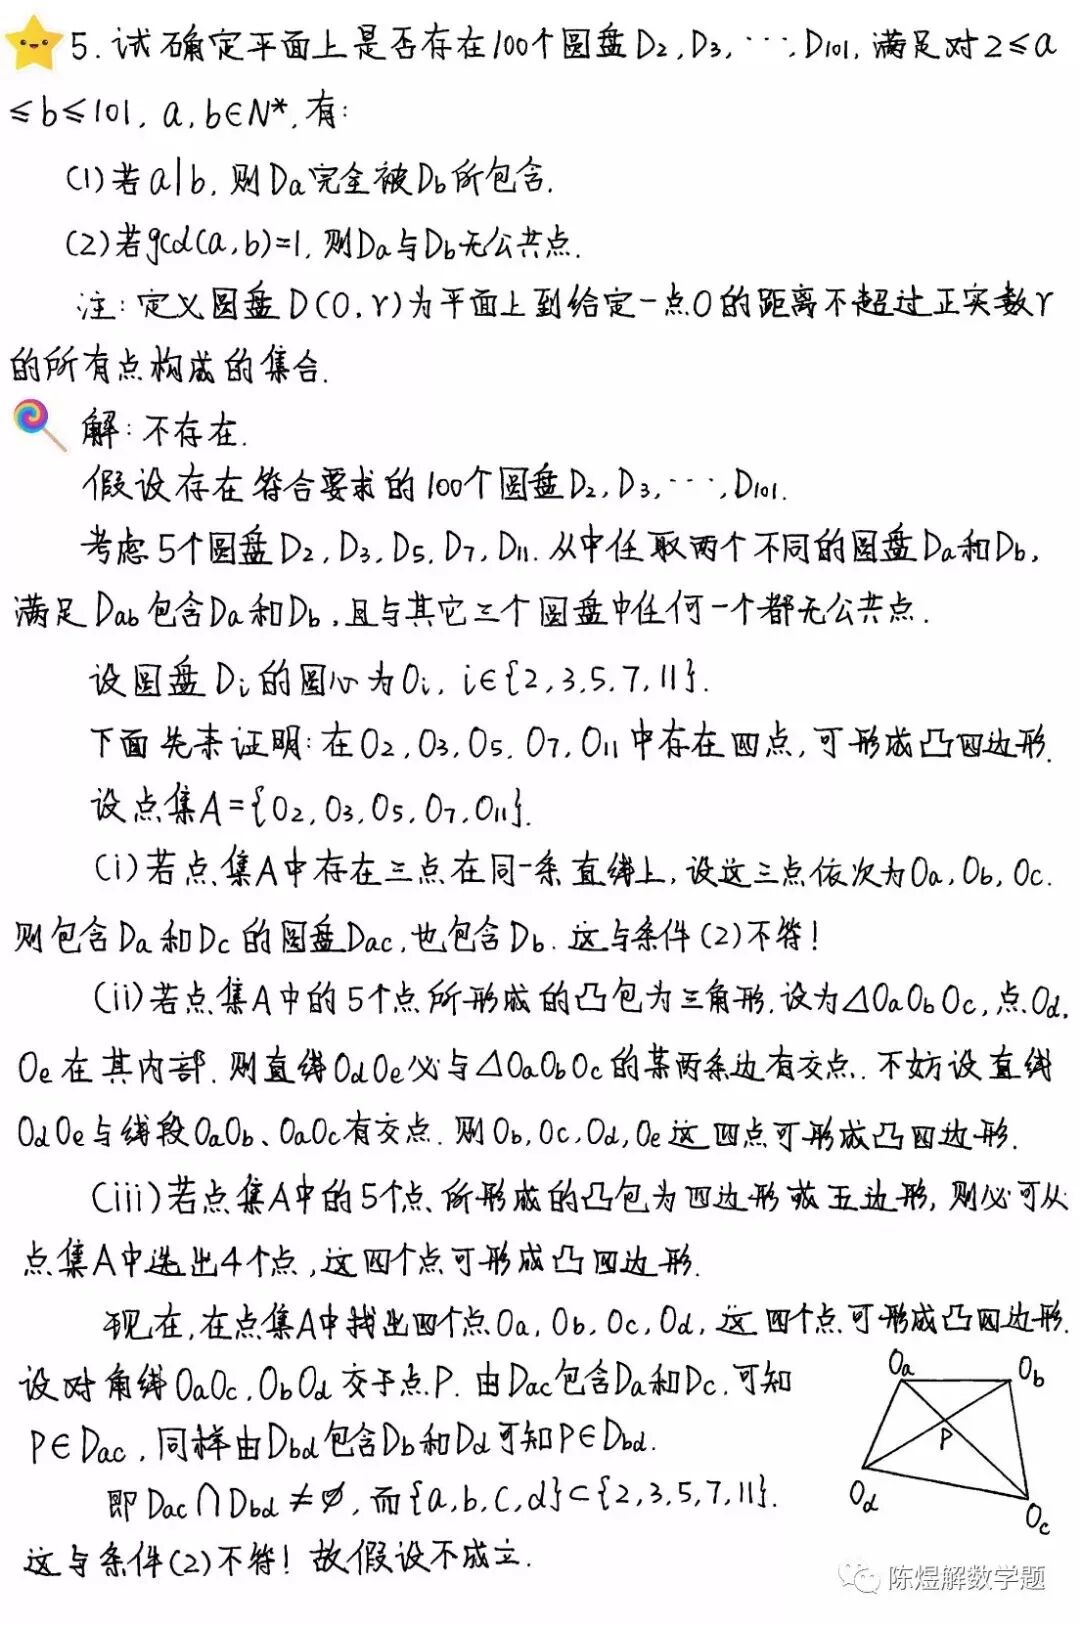 5. 试确定平面上是否存在100个圆盘D₂, D₃, ⋯, D₁₀₁, 满足对2≤a
≤b≤101, a, b∈N*, 有:
(1)若a|b, 则Da完全被Db所包含.
(2)若gcd(a,b)=1, 则Da与Db无公共点.
注: 定义圆盘D(O,r)为平面上到给定一点O的距离不超过正实数r
的所有点构成的集合.
解: 不存在.
假设存在符合要求的100个圆盘D₂, D₃, ⋯, D₁₀₁.
考虑5个圆盘D₂, D₃, D₅, D₇, D₁₁. 从中任取两个不同的圆盘Da和Db,
满足Dab包含Da和Db, 且与其它三个圆盘中任何一个都无公共点.
设圆盘Di的圆心为Oi, i∈{2,3,5,7,11}.
下面先来证明: 在O₂, O₃, O₅, O₇, O₁₁中存在四点, 可形成凸四边形.
设点集A={O₂, O₃, O₅, O₇, O₁₁}.
(i)若点集A中存在三点在同一条直线上, 设这三点依次为Oa, Ob, Oc.
则包含Da和Dc的圆盘Dac, 也包含Db. 这与条件(2)不符!
(ii)若点集A中的5个点所形成的凸包为三角形. 设为△OaObOc, 点Od,
Oe在其内部. 则直线OdOe必与△OaObOc的某两条边有交点. 不妨设直线
OdOe与线段OaOb、OaOc有交点. 则Ob, Oc, Od, Oe这四点可形成凸四边形.
(iii)若点集A中的5个点所形成的凸包为四边形或五边形, 则必可从
点集A中选出4个点, 这四个点可形成凸四边形.
现在, 在点集A中找出四个点Oa, Ob, Oc, Od, 这四个点可形成凸四边形.
设对角线OaOc, ObOd交于点P. 由Dac包含Da和Dc, 可知
P∈Dac, 同样由Dbd包含Db和Dd可知P∈Dbd.
即Dac∩Dbd≠∅, 而{a,b,c,d}⊂{2,3,5,7,11}.
这与条件(2)不符! 故假设不成立.
Oa
Ob
P
Od
Oc
陈煜解数学题